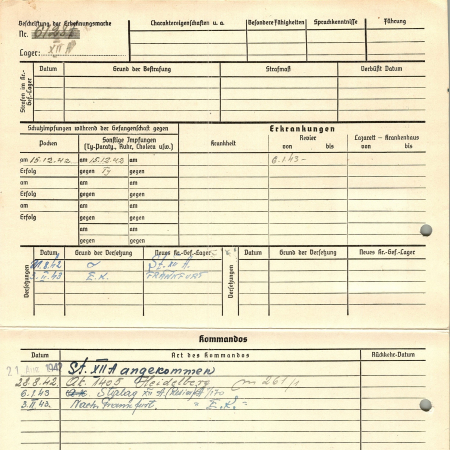 Beschriftung der Erkennungsmarke
Nr.
Lager: XII A
Charaktereigenschaften u. a.
Besondere Fähigkeiten
Sprachkenntnisse
Führung
Strafen im Kr.-Gef.-Lager
Datum
Grund der Bestrafung
Strafmaß
Verbüßt Datum
Schutzimpfungen während der Gefangenschaft gegen
Pocken
Sonstige Impfungen
(Ty-Paraty., Ruhr, Cholera usw.)
Erkrankungen
Krankheit
Revier
von bis
Lazarett - Krankenhaus
von bis
am 15.12.42 am 15.12.42 am
6.1.43 -
Erfolg gegen Ty gegen
am am am
Erfolg gegen gegen
am am am
Erfolg gegen gegen
am am
gegen gegen
Versetzungen
Datum
Grund der Versetzung
Neues Kr.-Gef.-Lager
Versetzungen
Datum
Grund der Versetzung
Neues Kr.-Gef.-Lager
St. XII A.
3.II.43 E.K. FRANKFURT
Kommandos
Datum
Art des Kommandos
Rückkehr-Datum
21 Aug. 1942 St. XII A angekommen
28.8.42. 1405 Heidelberg
6.1.43 Stalag XII A
3.II.43. Nach Frankfurt. " E.K. "